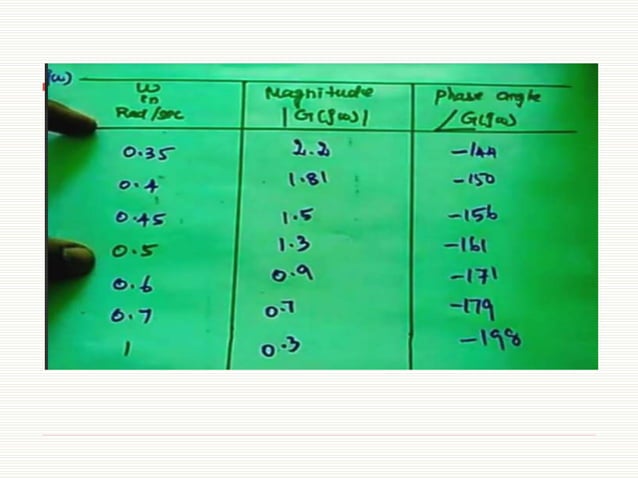 ω in Rad/sec | Magnitude |G(jω)| | Phase angle ∠G(jω)
0.35 2.2 -144
0.4 1.81 -150
0.45 1.5 -156
0.5 1.3 -161
0.6 0.9 -171
0.7 0.7 -179
1 0.3 -198